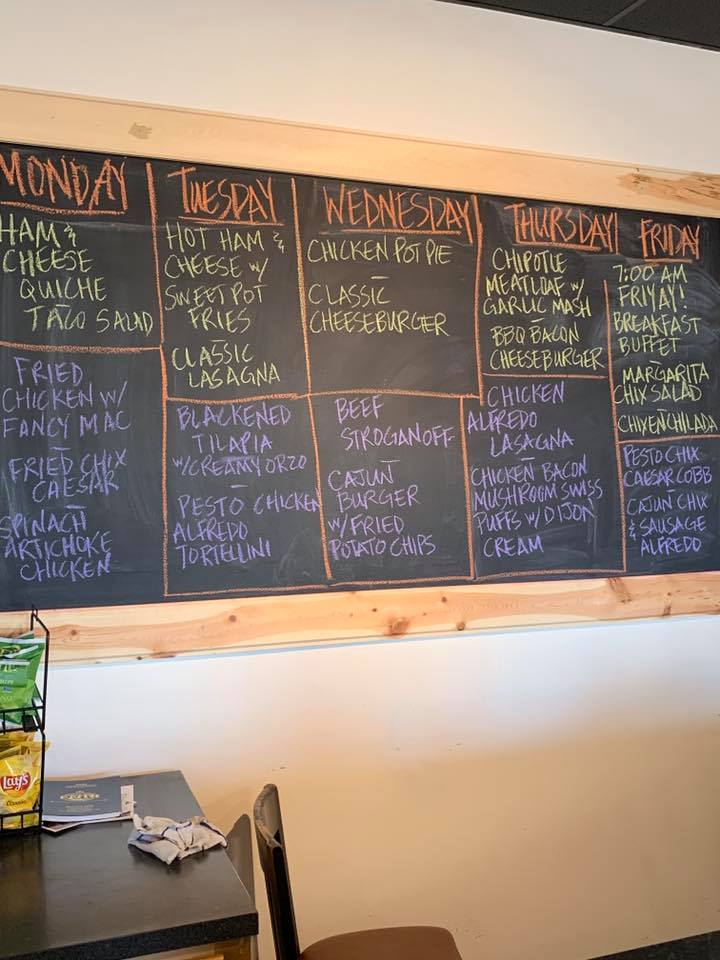 MONDAY
HAM &
CHEESE
QUICHE
—
TACO SALAD
FRIED
CHICKEN W/
FANCY MAC
—
FRIED CHIX
CAESAR
—
SPINACH
ARTICHOKE
CHICKEN
TUESDAY
HOT HAM &
CHEESE W/
SWEET POT
FRIES
—
CLASSIC
LASAGNA
BLACKENED
TILAPIA
W/CREAMY ORZO
—
PESTO CHICKEN
ALFREDO
TORTELLINI
WEDNESDAY
CHICKEN POT PIE
—
CLASSIC
CHEESEBURGER
BEEF
STROGANOFF
—
CAJUN
BURGER
W/FRIED
POTATO CHIPS
THURSDAY
CHIPOTLE
MEATLOAF W/
GARLIC MASH
—
BBQ BACON
CHEESEBURGER
CHICKEN
ALFREDO
LASAGNA
—
CHICKEN BACON
MUSHROOM SWISS
PUFFS W/DIJON
CREAM
FRIDAY
7:00 AM
FRIYAY!
BREAKFAST
BUFFET
—
MARGARITA
CHIX SALAD
—
CHIX ENCHILADA
PESTO CHIX
CAESAR COBB
—
CAJUN CHIX
& SAUSAGE
ALFREDO
Lay's
Classic